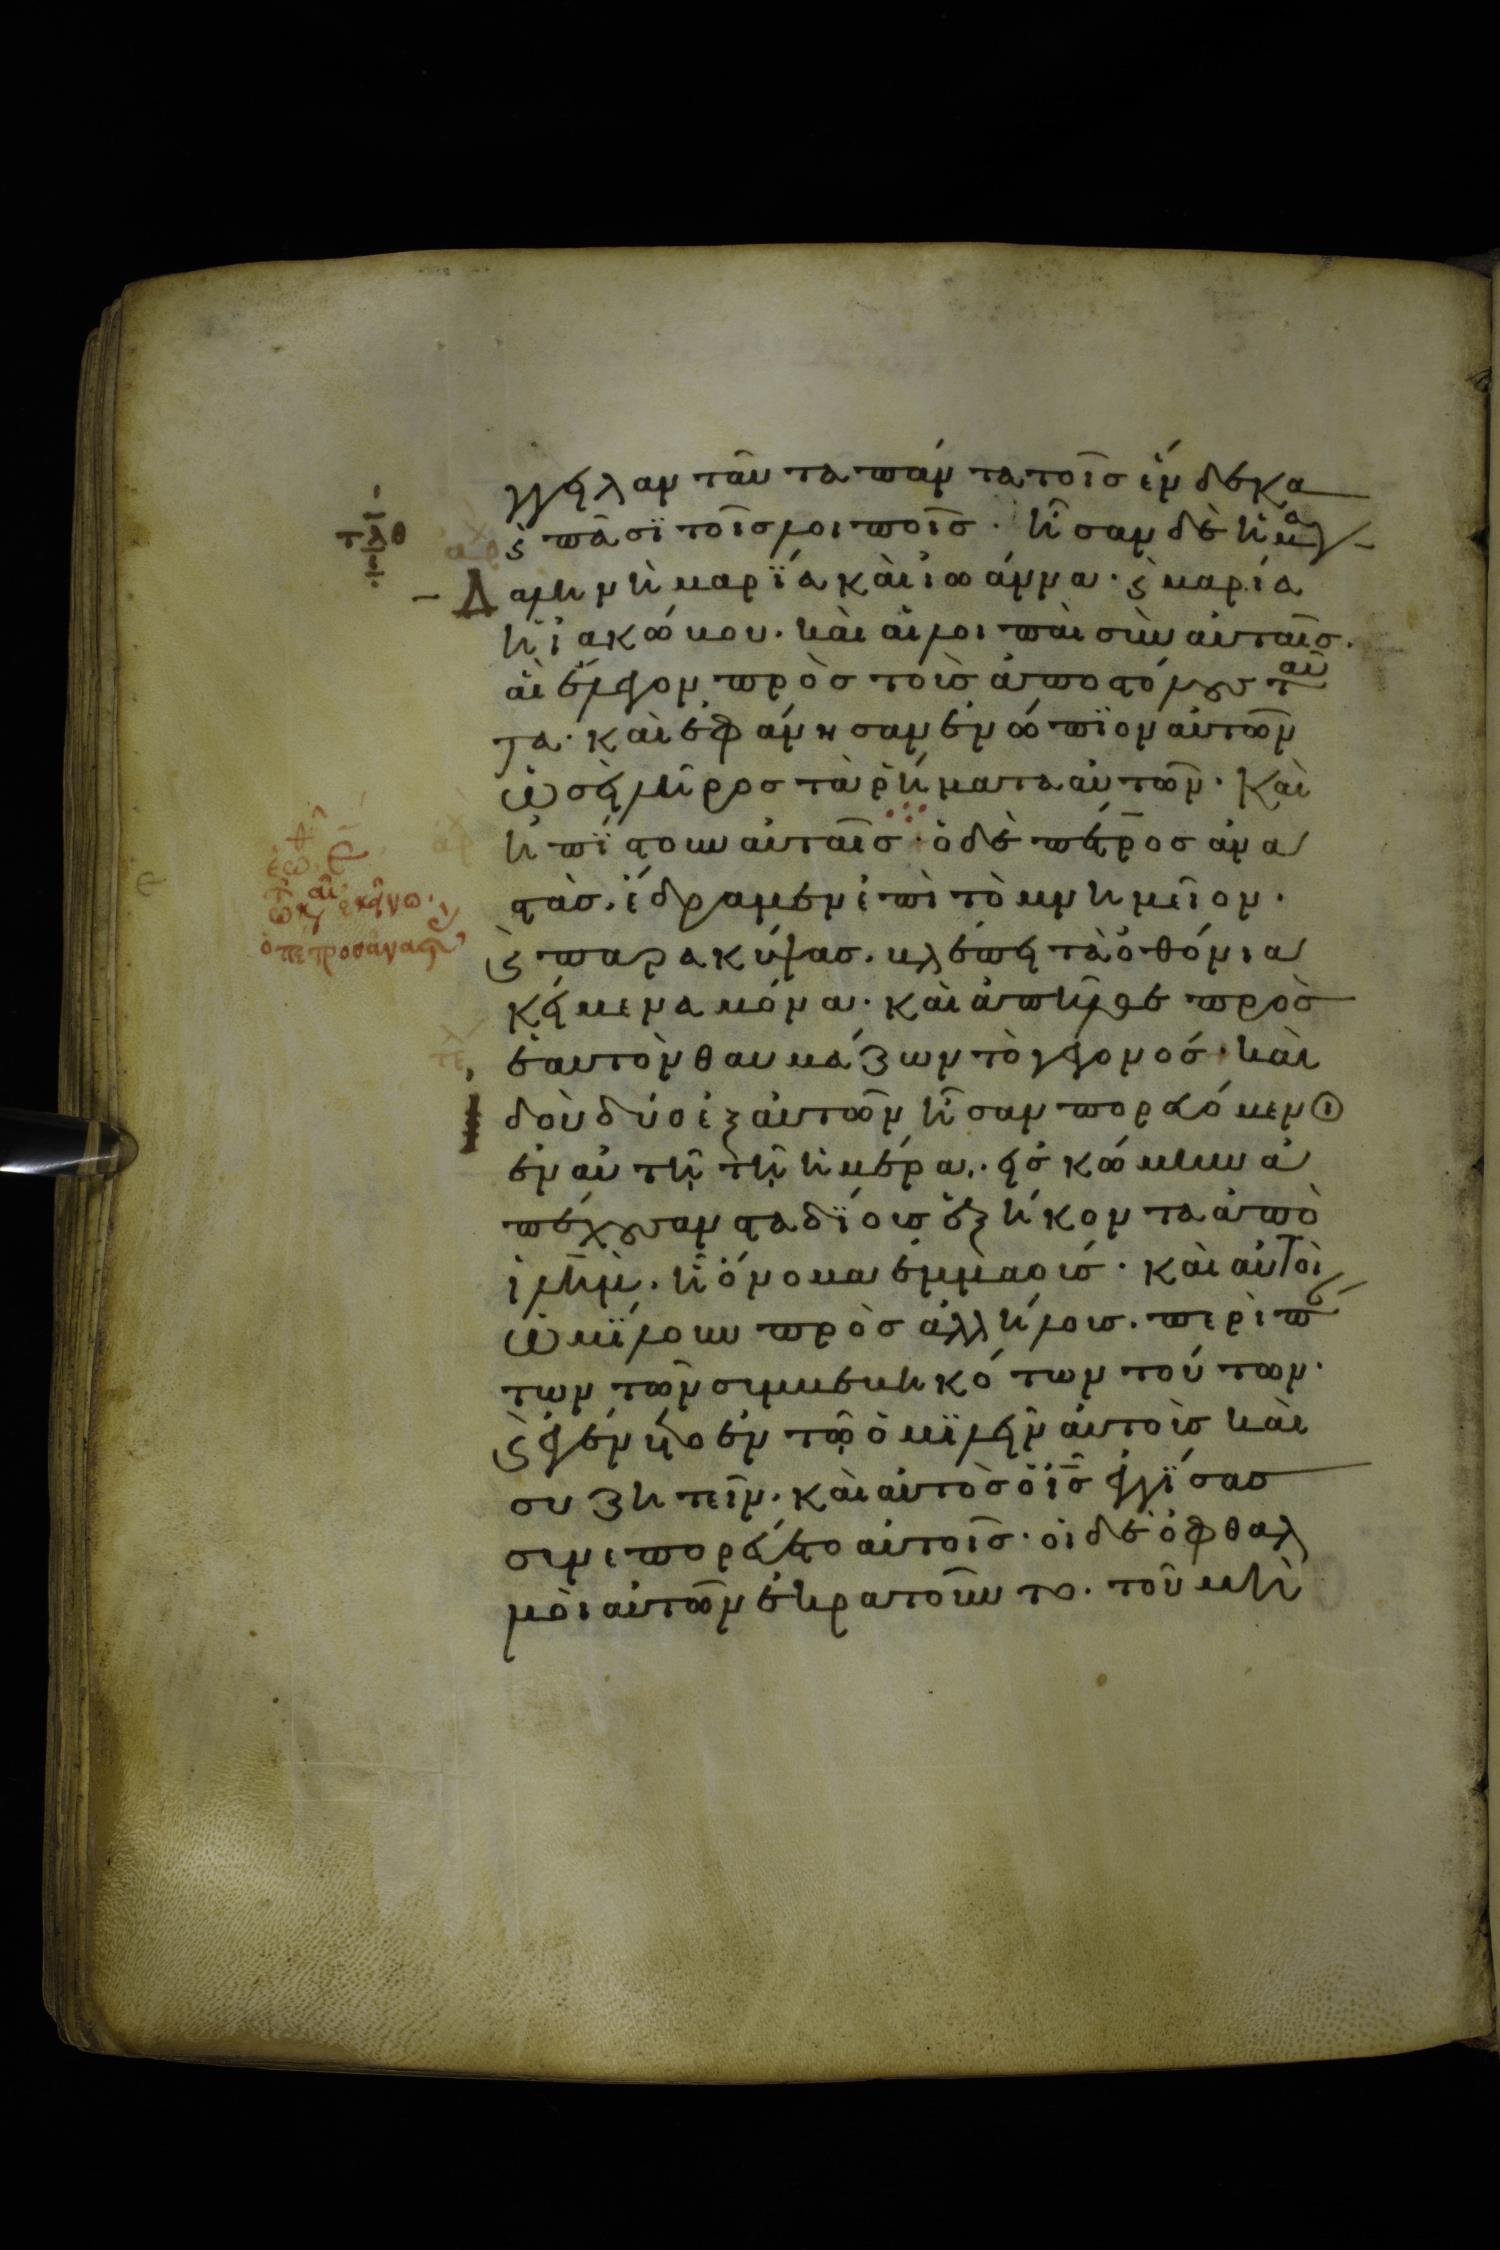 τλθ
γγειλαν ταῦτα πάντα τοῖς ἕνδεκα
ϛ πᾶσϊ τοῖς λοιποῖς· ἦσαν δὲ ἡ μαγ
Δαληνὴ μαρϊα καὶ ἰωάννα· ϛ μαρία
ἡ ἰακώβου· καὶ αἱ λοιπαὶ σὺν αὐταῖς·
αἱ ἔλεγον πρὸς τοὺς ἀποστόλους ταῦ
τα· καὶ ἐφάνησαν ἐνώπϊον αὐτῶν
ὡσεὶ λῆρος τὰ ῥήματα αὐτῶν· καὶ
ἠπϊστουν αὐταῖς· ὁ δὲ πέτρος ἀνα
στὰς· ἔδραμεν ἐπὶ τὸ μνημεῖον·
ϛ παρακύψας· βλέπει τὰ ὀθόνια
κείμενα μόνα· καὶ ἀπῆλθε πρὸς
ἑαυτὸν θαυμάζων τὸ γεγονός· καὶ
ἰδοὺ δύο ἐξ αὐτῶν ἦσαν πορευόμενοι
ἐν αὐτῇ τῇ ἡμέρα· εἰς κώμην ἀ
πέχουσαν σταδϊους ἑξήκοντα ἀπὸ
ἱλῆμ· ἧ ὄνομα ἐμμαούς· καὶ αὐτοὶ
ὡμϊλουν πρὸς ἀλλήλους· περὶ πάν
των τῶν συμβεβηκότων τούτων·
ϛ ἐγένετο ἐν τῷ ὁμϊλεῖν αὐτοὺς καὶ
συζητεῖν· καὶ αὐτὸς ὁ ἰς ἐγγϊσας
συνεπορεύετο αὐτοῖς· οἱ δὲ ὀφθαλ
μοὶ αὐτῶν ἐκρατοῦντο· τοῦ μὴ
ὁ πέτρος ἀναστ